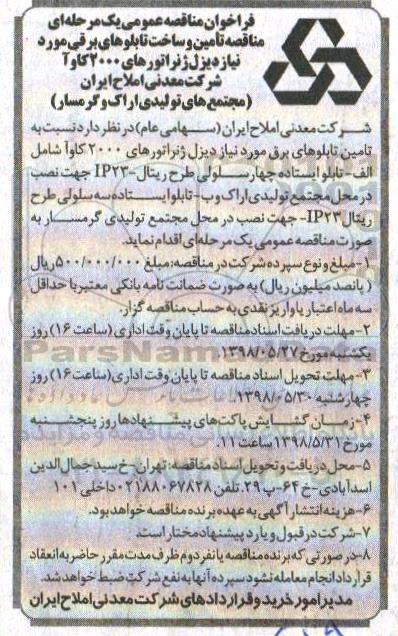 فراخوان مناقصه عمومی یک مرحله ای
مناقصه تامین و ساخت تابلوهای برقی مورد
نیاز دیزل ژنراتورهای ۲۰۰۰ کاوآ
شرکت معدنی املاح ایران
(مجتمع های تولیدی اراک و گرمسار)
شرکت معدنی املاح ایران (سهامی عام) در نظر دارد نسبت به
تامین تابلوهای برق مورد نیاز دیزل ژنراتورهای ۲۰۰۰ کاوآ شامل
الف-تابلو ایستاده چهار سلولی طرح ریتال-IP۲۳ جهت نصب
در محل مجتمع تولیدی اراک و ب-تابلو ایستاده سه سلولی طرح
ریتال IP۲۳- جهت نصب در محل مجتمع تولیدی گرمسار به
صورت مناقصه عمومی یک مرحله ای اقدام نماید.
۱-مبلغ و نوع سپرده شرکت در مناقصه: مبلغ ۵۰۰/۰۰۰/۰۰۰ ریال
(پانصد میلیون ریال) به صورت ضمانت نامه بانکی معتبر با حداقل
سه ماه اعتبار یا واریز نقدی به حساب مناقصه گزار.
۲-مهلت دریافت اسناد مناقصه تا پایان وقت اداری (ساعت ۱۶) روز
یکشنبه مورخ ۱۳۹۸/۰۵/۲۷
۳-مهلت تحویل اسناد مناقصه تا پایان وقت اداری (ساعت ۱۶) روز
چهارشنبه ۱۳۹۸/۰۵/۳۰
۴-زمان گشایش پاکت های پیشنهادها روز پنجشنبه
مورخ ۱۳۹۸/۵/۳۱ ساعت ۱۱.
۵-محل دریافت و تحویل اسناد مناقصه: تهران-خ سید جمال الدین
اسدآبادی-خ ۶۴-پ ۲۹. تلفن ۰۲۱۸۸۰۶۷۸۲۸ داخلی ۱۰۱
۶-هزینه انتشار آگهی به عهده برنده مناقصه خواهد بود.
۷-شرکت در قبول و یا رد پیشنهاد مختار است.
۸-در صورتی که برنده مناقصه یا نفر دوم ظرف مدت مقرر حاضر به انعقاد
قرارداد انجام معامله نشود سپرده آنها به نفع شرکت ضبط خواهد شد.
مدیر امور خرید و قراردادهای شرکت معدنی املاح ایران